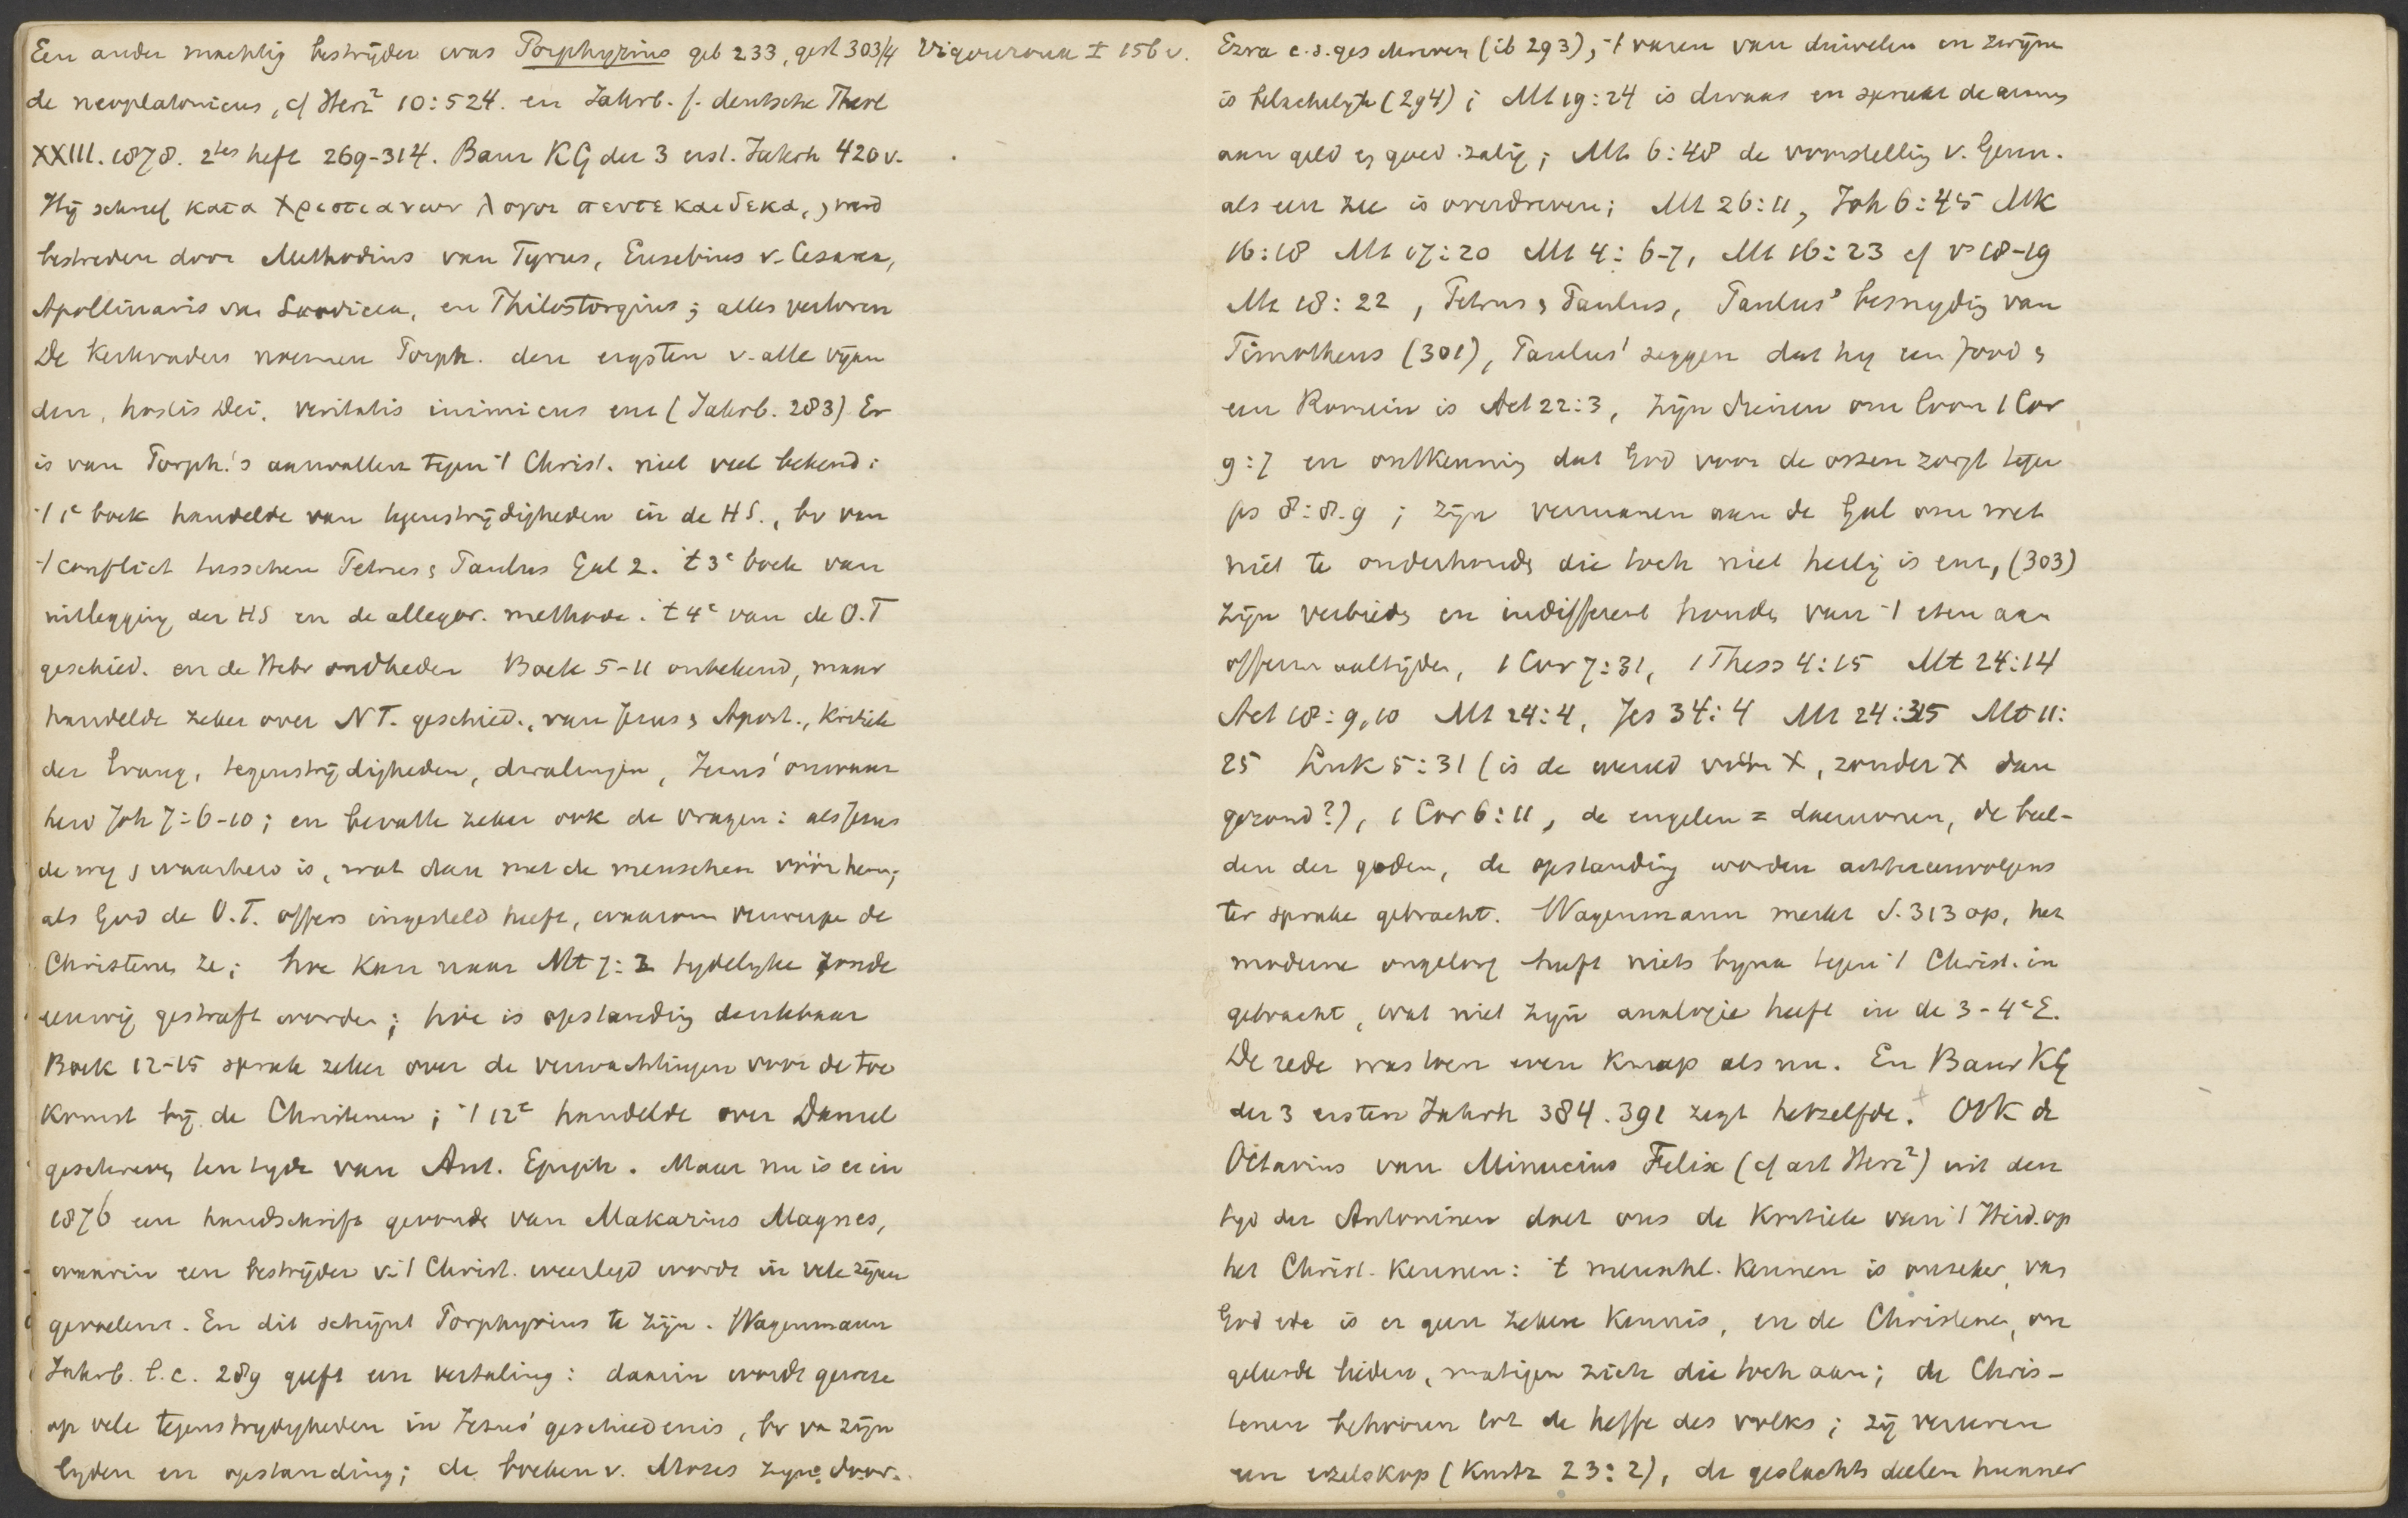 Een ander machtig bestrijder was Porphyrius geb 233, gest 303/4 Vigouroux I 156v.
de neoplatonicus, cf Herz² 10:524. en Jahrb. f. deutsche Theol
XXIII. 1878. 2tes heft 269-314. Baur KG der 3 erst. Jahrh 420v.
Hij schreef κατα Χριστιανων λογοι πεντεκαιδεκα, & werd
bestreden door Methodius van Tyrus, Eusebius v. Cesarea,
Apollinaris van Laodicea, en Philostorgius; alles verloren
De kerkvaders noemen Porph. den ergsten v. alle vijan
den, hostis Dei, veritatis inimicus enz (Jahrb. 283) Er
is van Porph.'s aanvallen tegen 't Christ. niet veel bekend:
't 1e boek handelde van tegenstrijdigheden in de HS., bv van
't conflict tusschen Petrus & Paulus Gal 2. 't 3e boek van
uitlegging der HS en de allegor. methode. 't 4e van de O.T
geschied. en de Hebr oudheden Boek 5-11 onbekend, maar
handelde zeker over NT. geschied., van Jezus & Apost., Kritiek
der Evang, tegenstrijdigheden, dwalingen, Jezus' onwaar
heid Joh 7:6-10; en bevatte zeker ook de vragen: als Jezus
de weg & waarheid is, wat dan met de menschen vóór hem;
als God de O.T. offers ingesteld heeft, waarom verwerpen de
Christenen ze; hoe kan naar Mt 7:2 tydelyke zonde
eeuwig gestraft worden; hoe is opstanding denkbaar
Boek 12-15 sprak zeker over de verwachtingen voor de toe
komst bij de Christenen; 't 12e handelde over Daniel
geschreven ten tyde van Ant. Epiph. Maar nu is er in
1876 een handschrift gevonden van Makarius Magnes,
waarin een bestrijder v. 't Christ. weerlegd wordt in vele zijner
gevoelens. En dit schijnt Porphyrius te zijn. Wagenmann
Jahrb. l.c. 289 geeft een vertaling: daarin wordt gewezen
op vele tegenstrydigheden in Jezus' geschiedenis, bv van zijn
lyden en opstanding; de boeken v. Mozes zyn door
Ezra e.a. geschreven (ib 293), 't varen van duivelen in zwijnen
is belachelyk (294); Mt 19:24 is dwaas en spreekt de armen
aan geld en goed zalig; Mt 6:48 de voorstelling v. Genn.
als een zee is overdreven; Mt 26:11, Joh 6:45 Mk
16:18 Mt 17:20 Mt 4:6-7, Mt 16:23 cf vs 18-19
Mt 18:22, Petrus & Paulus, Paulus' besnyding van
Timotheus (301), Paulus' zeggen dat hy een Jood &
een Romein is Act 22:3, zijn dienen om loon 1 Cor
9:7 en ontkenning dat God voor de ossen zorgt tegen
ps 8:8.9; zijn vermanen aan de Gal om wet
niet te onderhouden die toch niet heilig is enz, (303)
zijn verbieden en indifferent houden van 't eten aan
offermaaltijden, 1 Cor 7:31, 1 Thess 4:15 Mt 24:14
Act 18:9,10 Mt 24:4, Jes 34:4 Mt 24:35 Mt 11:
25 Luk 5:31 (is de wereld vóór X, zonder X dan
gezond?), 1 Cor 6:11, de engelen = daemonen, de beel-
den der goden, de opstanding worden achtereenvolgens
ter sprake gebracht. Wagenmann merkt S. 313 op, het
moderne ongeloof heeft niets byna tegen 't Christ. in
gebracht, wat niet zijn analogie heeft in de 3-4e E.
De rede was toen even knap als nu. En Baur KG
der 3 ersten Jahrh 384. 391 zegt hetzelfde. Ook de
Octavius van Minucius Felix (cf art Herz²) uit den
tyd der Antoninen doet ons de kritiek van 't Heid. op
het Christ. kennen: 't menschl. kennen is onzeker, van
God ete is er geen zekere kennis, en de Christenen, on
geleerde lieden, matigen zich die toch aan; de Chris-
tenen behooren tot de heffe des volks; zij vereeren
een ezelskop (Kurtz 23:2), de geslachtsdeelen hunner